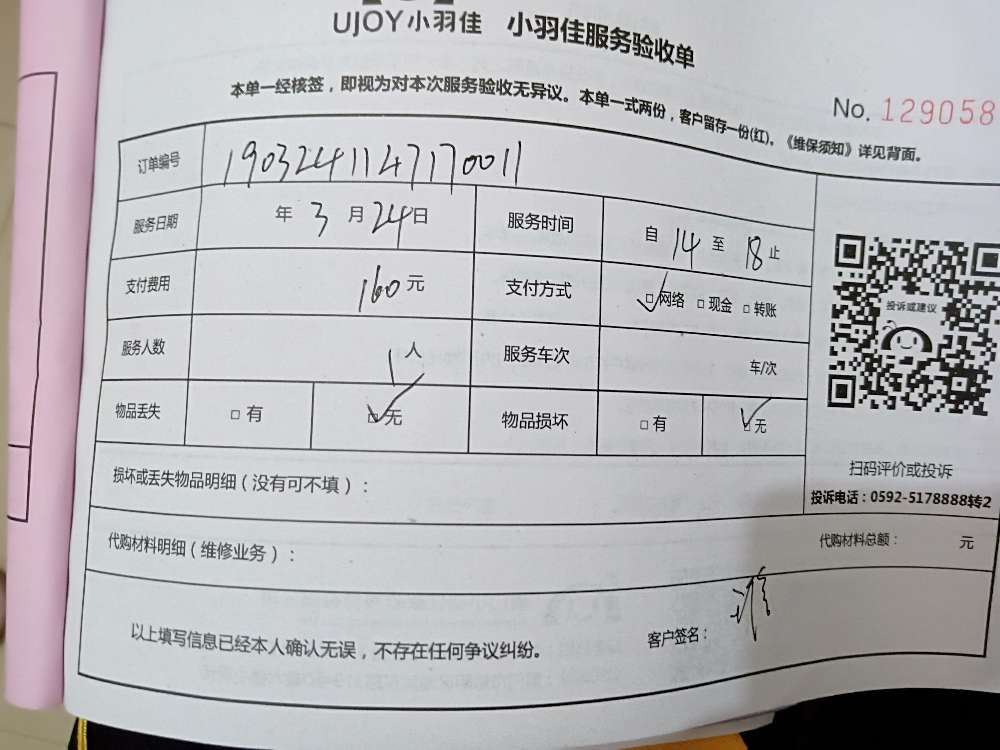 UJOY小羽佳 小羽佳服务验收单
本单一经核签，即视为对本次服务验收无异议。本单一式两份，客户留存一份(红)。《维保须知》详见背面。
No. 129058
订单编号 1903241147170011
服务日期 年 3 月 24 日 服务时间 自 14 至 18 止
支付费用 160 元 支付方式 □网络 □现金 □转账
服务人数 1人 服务车次 车/次
物品丢失 □有 □无 物品损坏 □有 □无
投诉或建议
扫码评价或投诉
投诉电话：0592-5178888转2
损坏或丢失物品明细（没有可不填）：
代购材料明细（维修业务）： 代购材料总额： 元
以上填写信息已经本人确认无误，不存在任何争议纠纷。 客户签名：